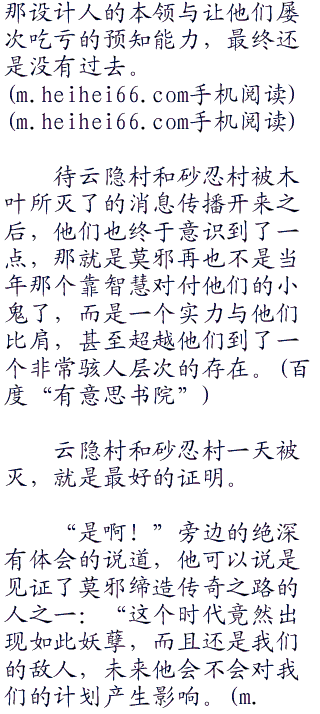 那设计人的本领与让他们屡
次吃亏的预知能力，最终还
是没有过去。
(m.heihei66.com手机阅读)
(m.heihei66.com手机阅读)
待云隐村和砂忍村被木
叶所灭了的消息传播开来之
后，他们也终于意识到了一
点，那就是莫邪再也不是当
年那个靠智慧对付他们的小
鬼了，而是一个实力与他们
比肩，甚至超越他们到了一
个非常骇人层次的存在。(百
度“有意思书院”)
云隐村和砂忍村一天被
灭，就是最好的证明。
“是啊！”旁边的绝深
有体会的说道，他可以说是
见证了莫邪缔造传奇之路的
人之一：“这个时代竟然出
现如此妖孽，而且还是我们
的敌人，未来他会不会对我
们的计划产生影响。(m.